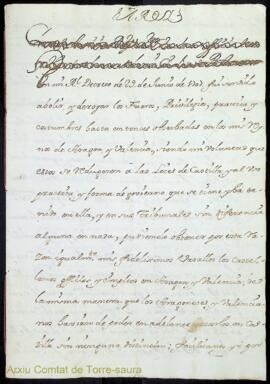 en mi Rl. Decreto de 29. de Junio de 1707. fui servido
abolir, y derogar los Fueros, Privilegios, practica, y
costumbres hasta entonces observadas en los mis Reynos
de Aragon, y Valencia, siendo mi voluntad que
estos se reduzcan à las Leies de Castilla, y al Vso
practica, y forma de govierno que se tiene, y ha tenido
en ella, y en sus Tribunales sin diferencia
alguna en nada, pudiendo obtener por esta Razon
igualmte. mis fidelisimos Vasallos los Castellanos
officios, y Empleos en Aragon, y Valencia, de
la misma manera que los Aragoneses, y Valencianos
han de poder en adelante gozarlos en Castilla
sin ninguna distincion; facilitando yo por
Arxiu Comtat de Torre-saura